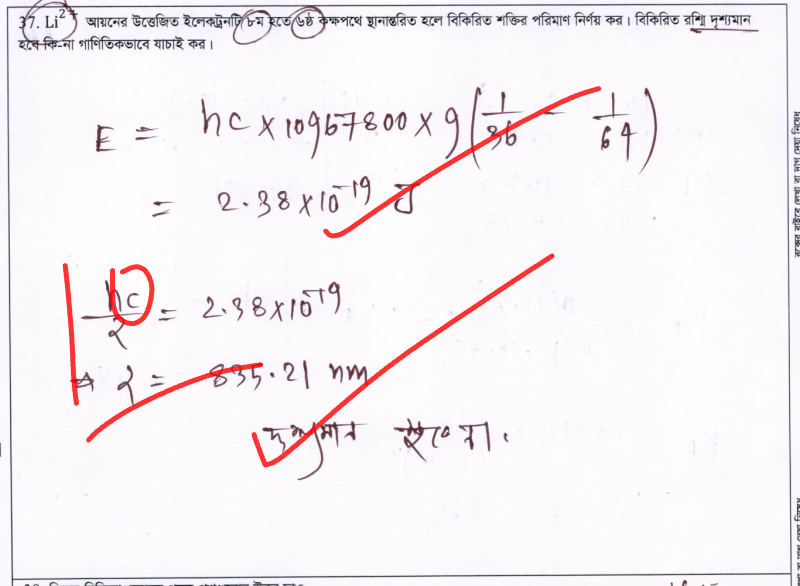 37. Li²⁺ আয়নের উত্তেজিত ইলেকট্রনটি ৮ম হতে ৬ষ্ঠ কক্ষপথে স্থানান্তরিত হলে বিকিরিত শক্তির পরিমাণ নির্ণয় কর। বিকিরিত রশ্মি দৃশ্যমান
হবে কি-না গাণিতিকভাবে যাচাই কর।
E = hc × 10967800 × 9 (1/36 − 1/64)
= 2.38 × 10⁻¹⁹ J
hc/λ = 2.38 × 10⁻¹⁹
λ = 835.21 nm
দৃশ্যমান হবে না.